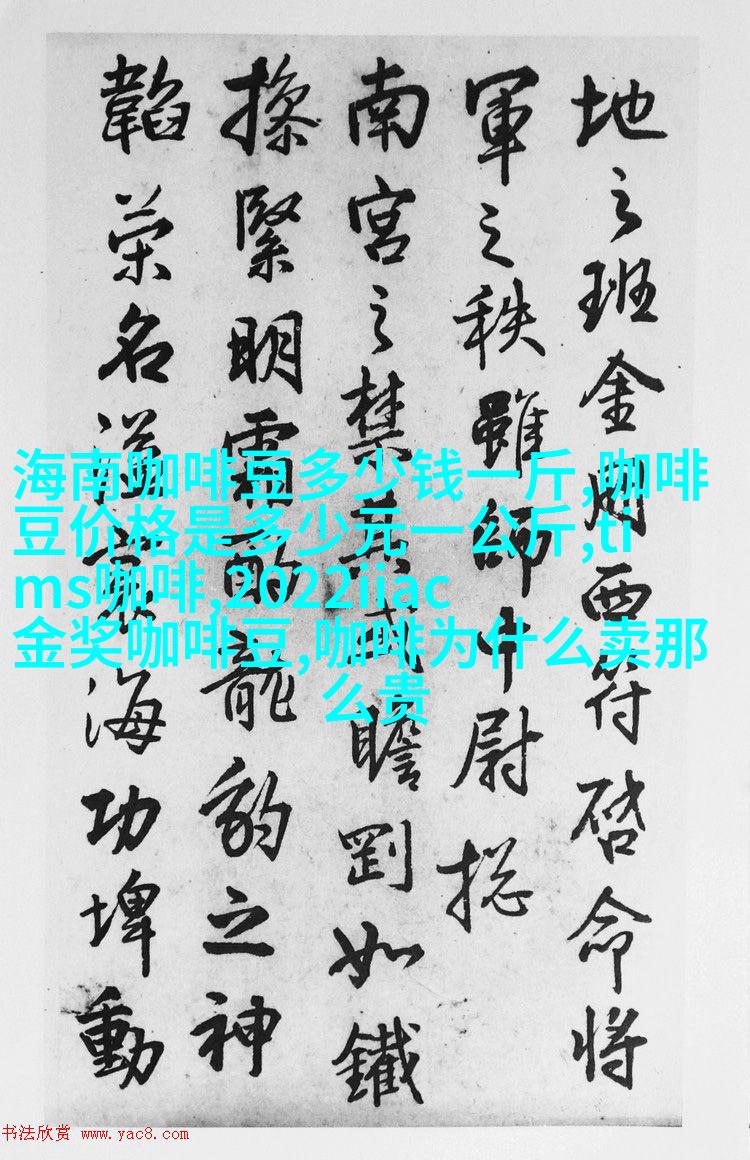 海南咖啡豆多少钱一斤,咖啡
豆价格是多少元一公斤,ti
ms咖啡,2022iiac
金奖咖啡豆,咖啡为什么卖那
么贵
地之班金西符啓命将
軍之秩雖師中尉揔
南宮之禁瞻如鐵
操緊明霜龍豹之神
韜榮名海功埤動
书法欣赏 www.yac8.com